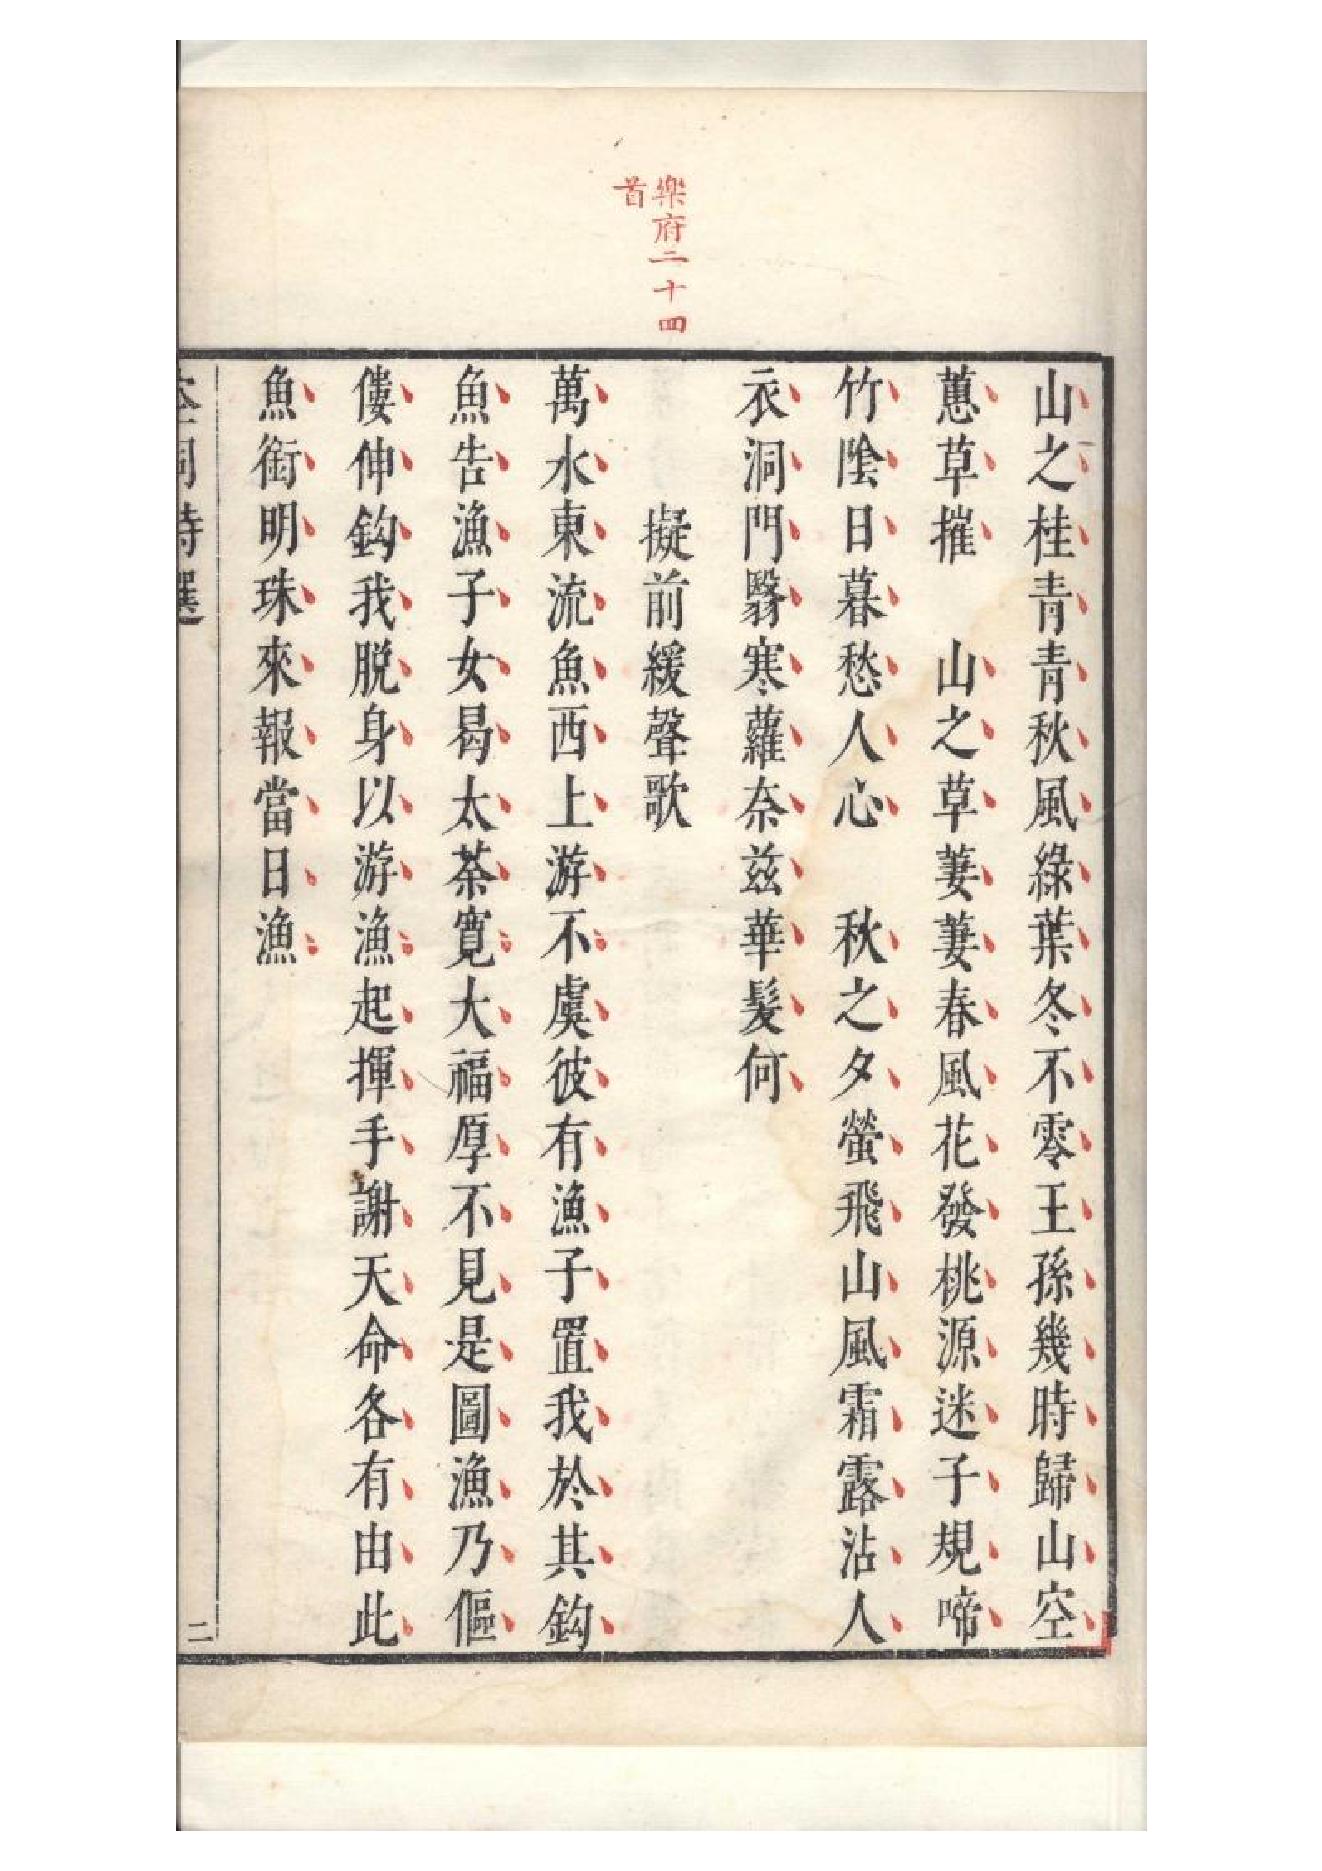 樂府二十四
首
山之桂青青秋風綠葉冬不零王孫幾時歸山空
蕙草摧　山之草萋萋春風花發桃源迷子規啼
竹陰日暮愁人心　秋之夕螢飛山風霜露沾人
衣洞門翳寒蘿奈兹華髮何
擬前緩聲歌
萬水東流魚西上游不虞彼有漁子置我於其鈎
魚告漁子女曷太荼寬大福厚不見是圖漁乃傴
僂伸鈎我脱身以游漁起揮手謝天命各有由此
魚銜明珠來報當日漁
空同詩選
二